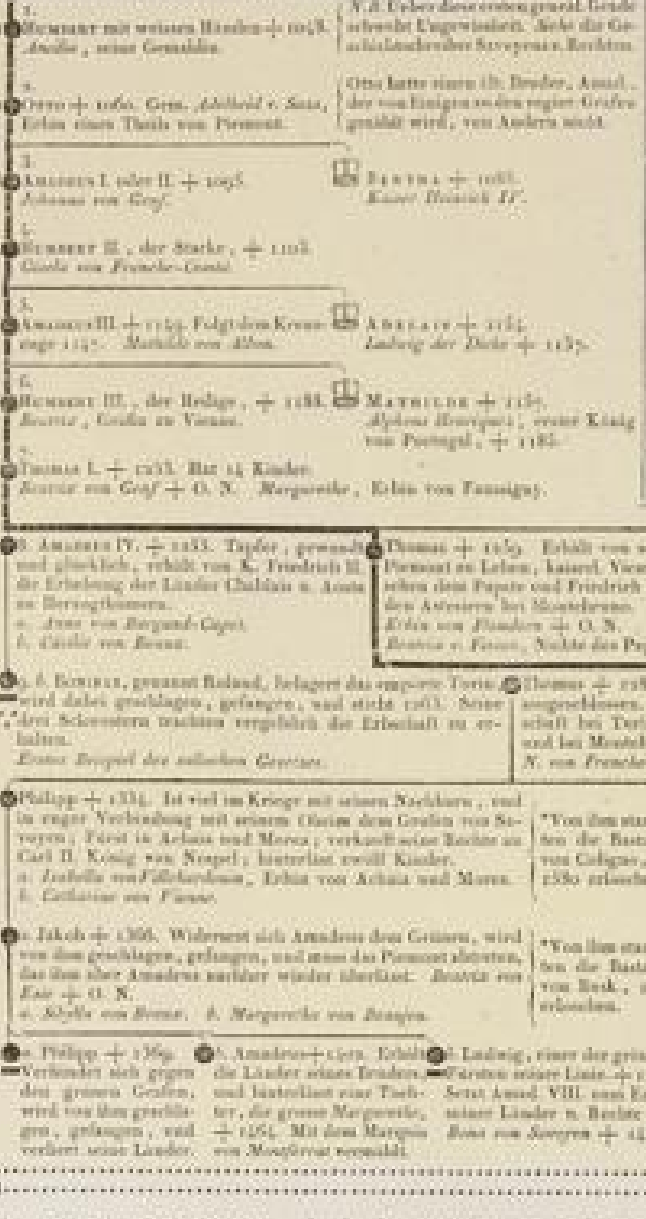 1.
HUMBERT mit weissen Händen + 1048.
Ancilia, seine Gemahlin.
N.B. Ueber diese ersten geneal. Grade
schwebt Ungewissheit. Siehe die Ge-
schichtschreiber Savoyens v. Rechten.
2.
OTTO + 1060. Gem. Adelheid v. Susa,
Erbin eines Theils von Piemont.
Otto hatte einen ält. Bruder, Amad.,
der von Einigen zu den regier. Grafen
gezählt wird, von Andern nicht.
3.
AMADEUS I. oder II. + 1095.
Johanna von Genf.
BERTHA +
Kaiser Heinrich IV.
4.
HUMBERT II., der Starke, + 1103.
Gisela von Franche-Comté.
5.
AMADEUS III. + 1149. Folgt dem Kreuz-
zuge 1147. Mathilde von Albon.
ADELAIS + 1154.
Ludwig der Dicke + 1137.
6.
HUMBERT III., der Heilige, + 1188.
Beatrix, Gräfin zu Vienne.
MATHILDE + 1157.
Alphons Henriquez, erster König
von Portugal, + 1185.
7.
THOMAS I. + 1233. Hat 14 Kinder.
Beatrix von Genf + O. N. Margarethe, Erbin von Faussigny.
8. AMADEUS IV. + 1253. Tapfer, gewandt
und glücklich, erhält von K. Friedrich II.
die Erhebung der Länder Chablais u. Aosta
zu Herzogthümern.
a. Anne von Burgund-Capet.
b. Cäcilie von Beaux.
Thomas + 1259. Erhält von
Piemont zu Lehen, kaiserl. Vicar
schen dem Papste und Friedrich
den Astesiern bei Montebruno.
Erbin von Flandern + O. N.
Beatrix v. Fiesco, Nichte des Pap
9. b. BONIFAZ, genannt Roland, belagert das empörte Turin,
wird dabei geschlagen, gefangen, und stirbt 1263. Seine
drei Schwestern trachten vergeblich die Erbschaft zu er-
halten.
Erstes Beispiel des salischen Gesetzes.
Thomas + 128
ausgeschlossen.
schaft bei Turi
und bei Montel
N. von Franche
Philipp + 1334. Ist viel im Kriege mit seinen Nachbarn, und
in enger Verbindung mit seinem Oheim dem Grafen von Sa-
voyen; Fürst in Achaia und Morea; verkauft seine Rechte an
Carl II. König von Neapel; hinterlässt zwölf Kinder.
a. Isabella von Villehardouin, Erbin von Achaia und Morea.
b. Catharine von Vienne.
"Von ihm sta
ten die Basta
von Coligno,
1580 erlosche
Jakob + 1366. Widersetzt sich Amadeus dem Grünen, wird
von ihm geschlagen, gefangen, und muss das Piemont abtreten,
das ihm aber Amadeus nachher wieder überlässt. Beatrix von
Este + O. N.
a. Sibylla von Beaux. b. Margarethe von Beaujeu.
"Von ihm sta
ten die Basta
erloschen.
a. Philipp + 1369.
Verbindet sich gegen
den grünen Grafen,
wird von ihm geschla-
gen, gefangen, und
verliert seine Länder.
b. Amadeus + 1402. Erhält
die Länder seines Bruders,
und hinterlässt eine Toch-
ter, die grosse Margarethe,
+ 1464. Mit dem Marquis
von Montferrat vermählt.
b. Ludwig, einer der grös
Fürsten seiner Linie +
Setzt Amad. VIII. zum E
seiner Länder u. Rechte
Bona von Savoyen + 14